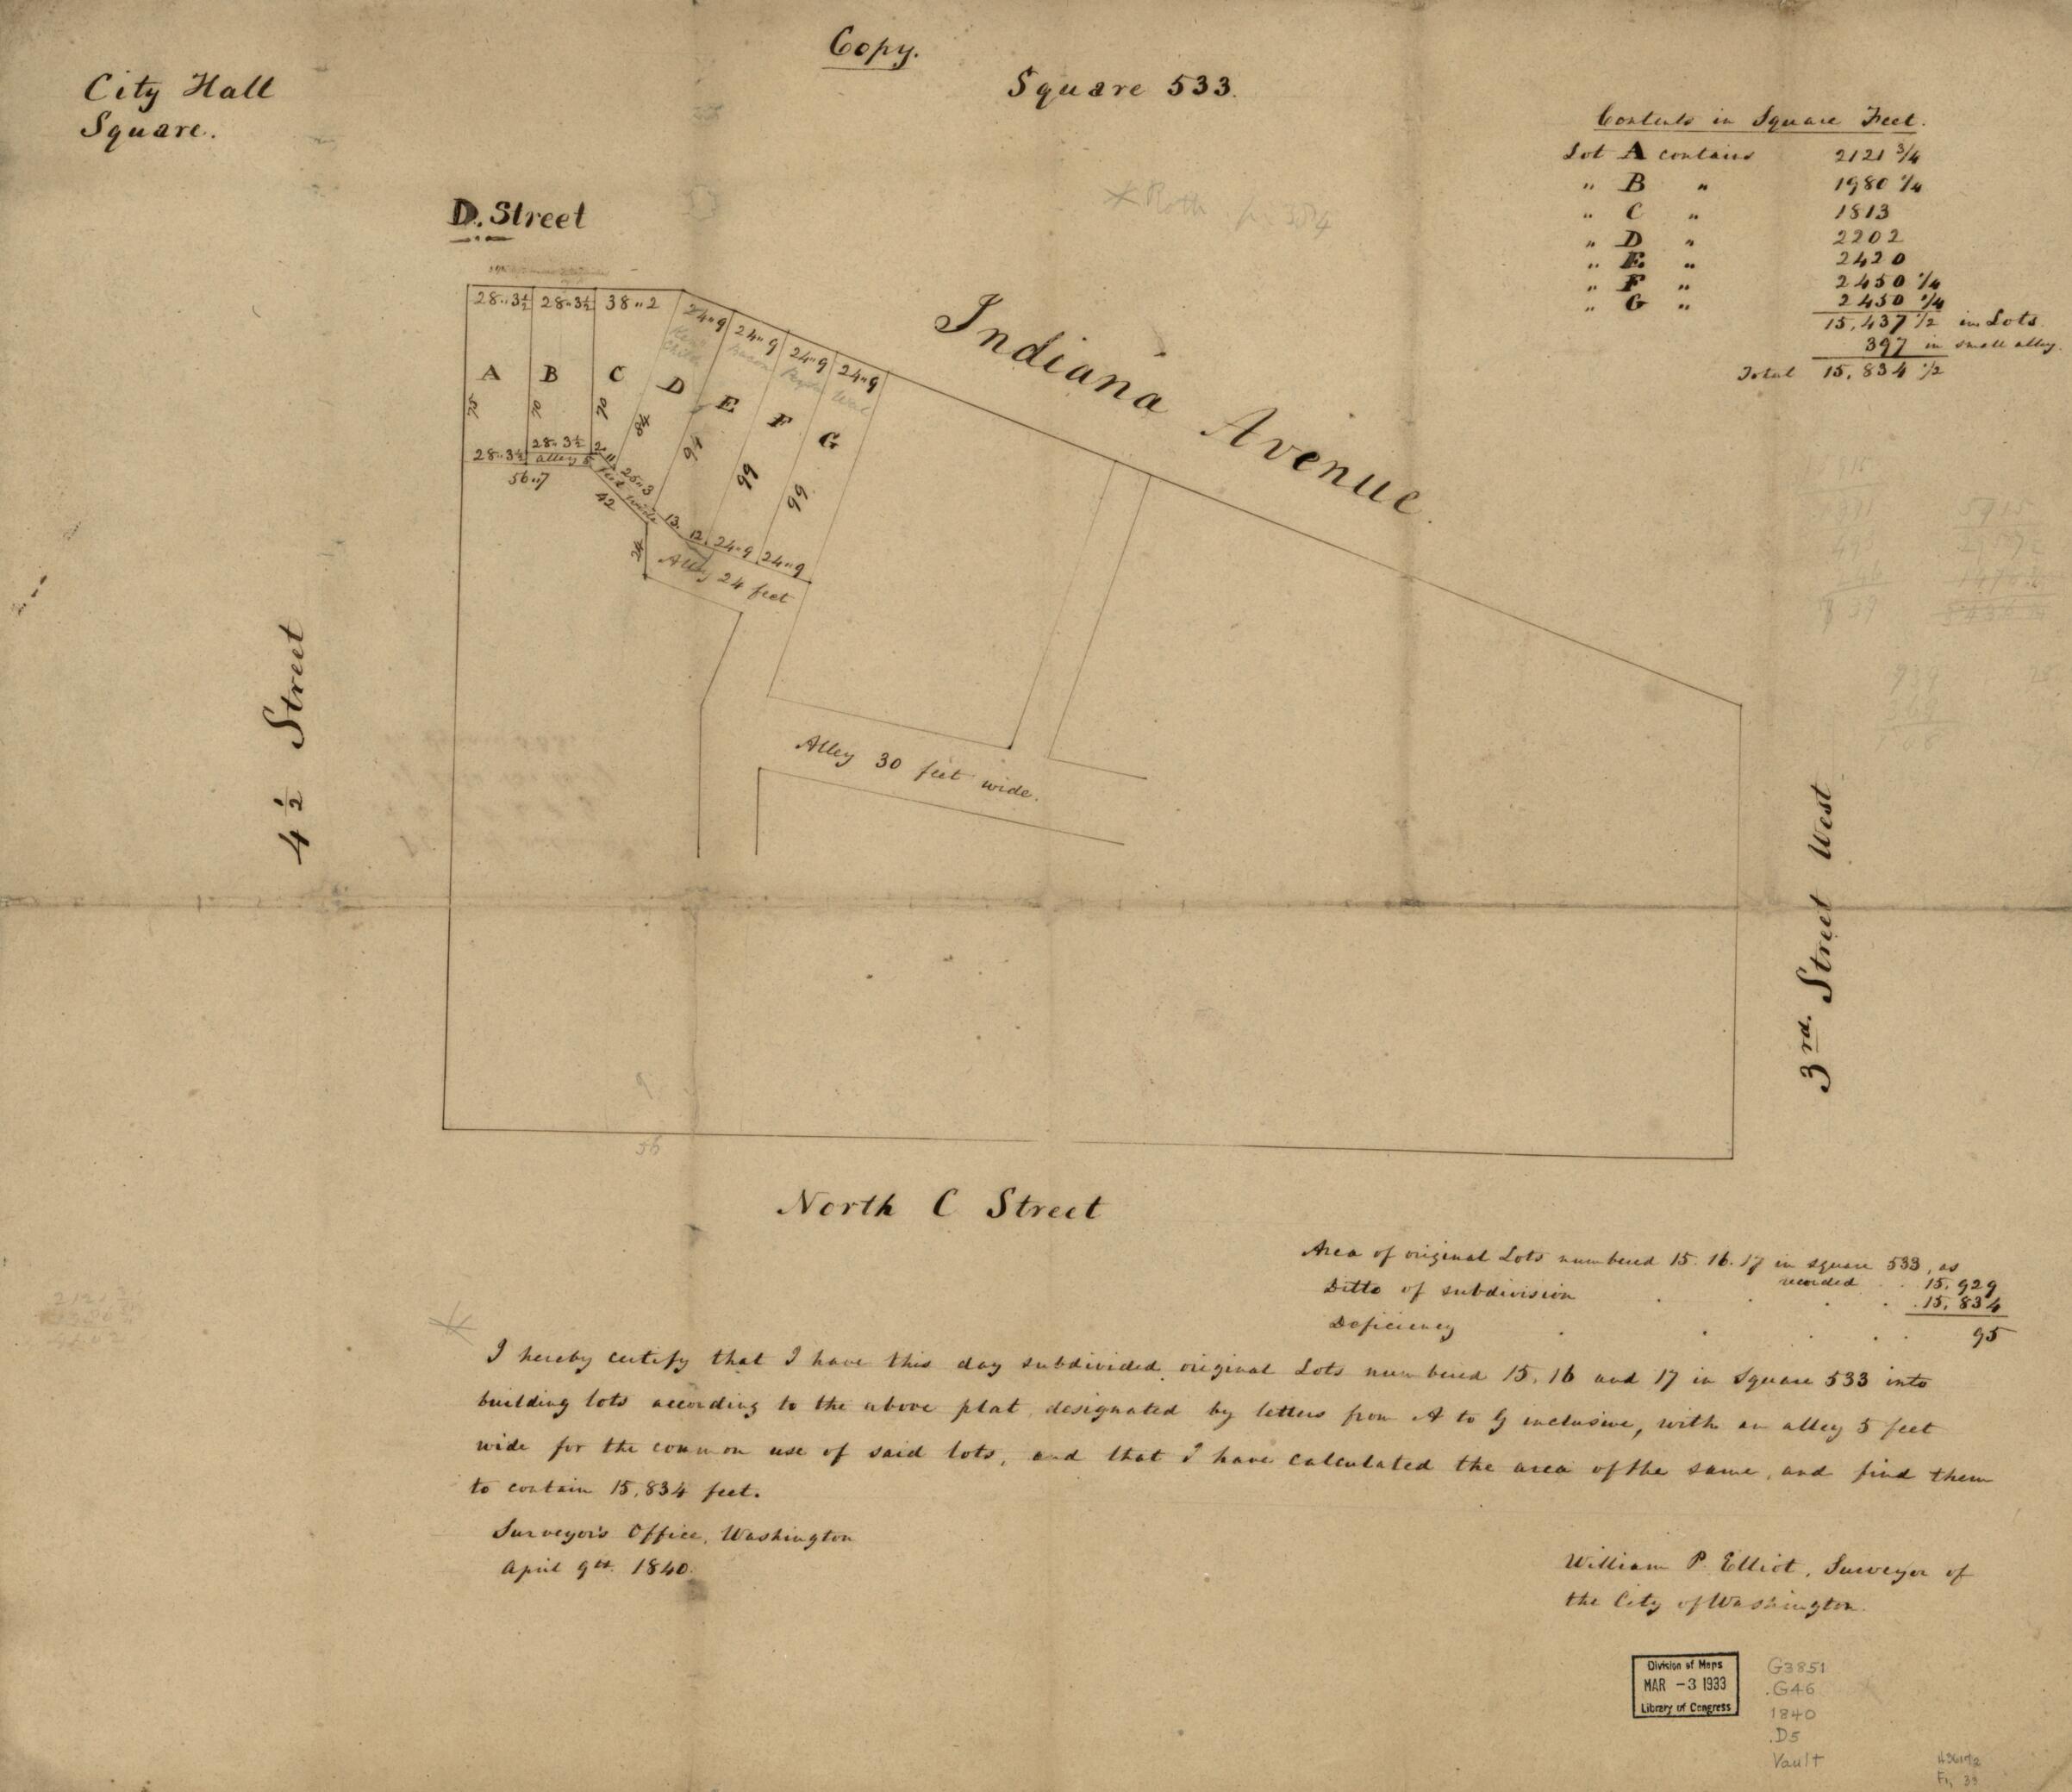 Copy.
Square 533.
City Hall
Square.
Contents in Square Feet.
Lot A contains 2121 3/4
" B " 1980 1/4
" C " 1813
" D " 2202
" E " 2420
" F " 2450 1/4
" G " 2450 1/4
15,437 1/2 in Lots
397 in small alley.
Total 15,834 1/2
D. Street
28"3½ 28"3½ 38"2 24"9 24"9 24"9 24"9
Indiana Avenue.
A B C D E F G
75 70 70 84 97 99 99
28"3½ 28"3½ 2"11 25"3
alley 5 feet wide
56"7 42
13. 12. 24"9 24"9
24
Alley 24 feet
4 ½ Street
Alley 30 feet wide.
3rd. Street West
56
North C Street
Area of original Lots numbered 15. 16. 17 in square 533, as
recorded . . 15,929
Ditto of subdivision . . . . 15,834
Deficiency . . . . . 95
I hereby certify that I have this day subdivided original Lots numbered 15, 16 and 17 in Square 533 into
building lots according to the above plat, designated by letters from A to G inclusive, with an alley 5 feet
wide for the common use of said lots, and that I have calculated the area of the same, and find them
to contain 15,834 feet.
Surveyor's Office, Washington
April 9th. 1840.
William P. Elliot, Surveyor of
the City of Washington.
Division of Maps
MAR -3 1933
Library of Congress
G3851
.G46
1840
.D5
Vault